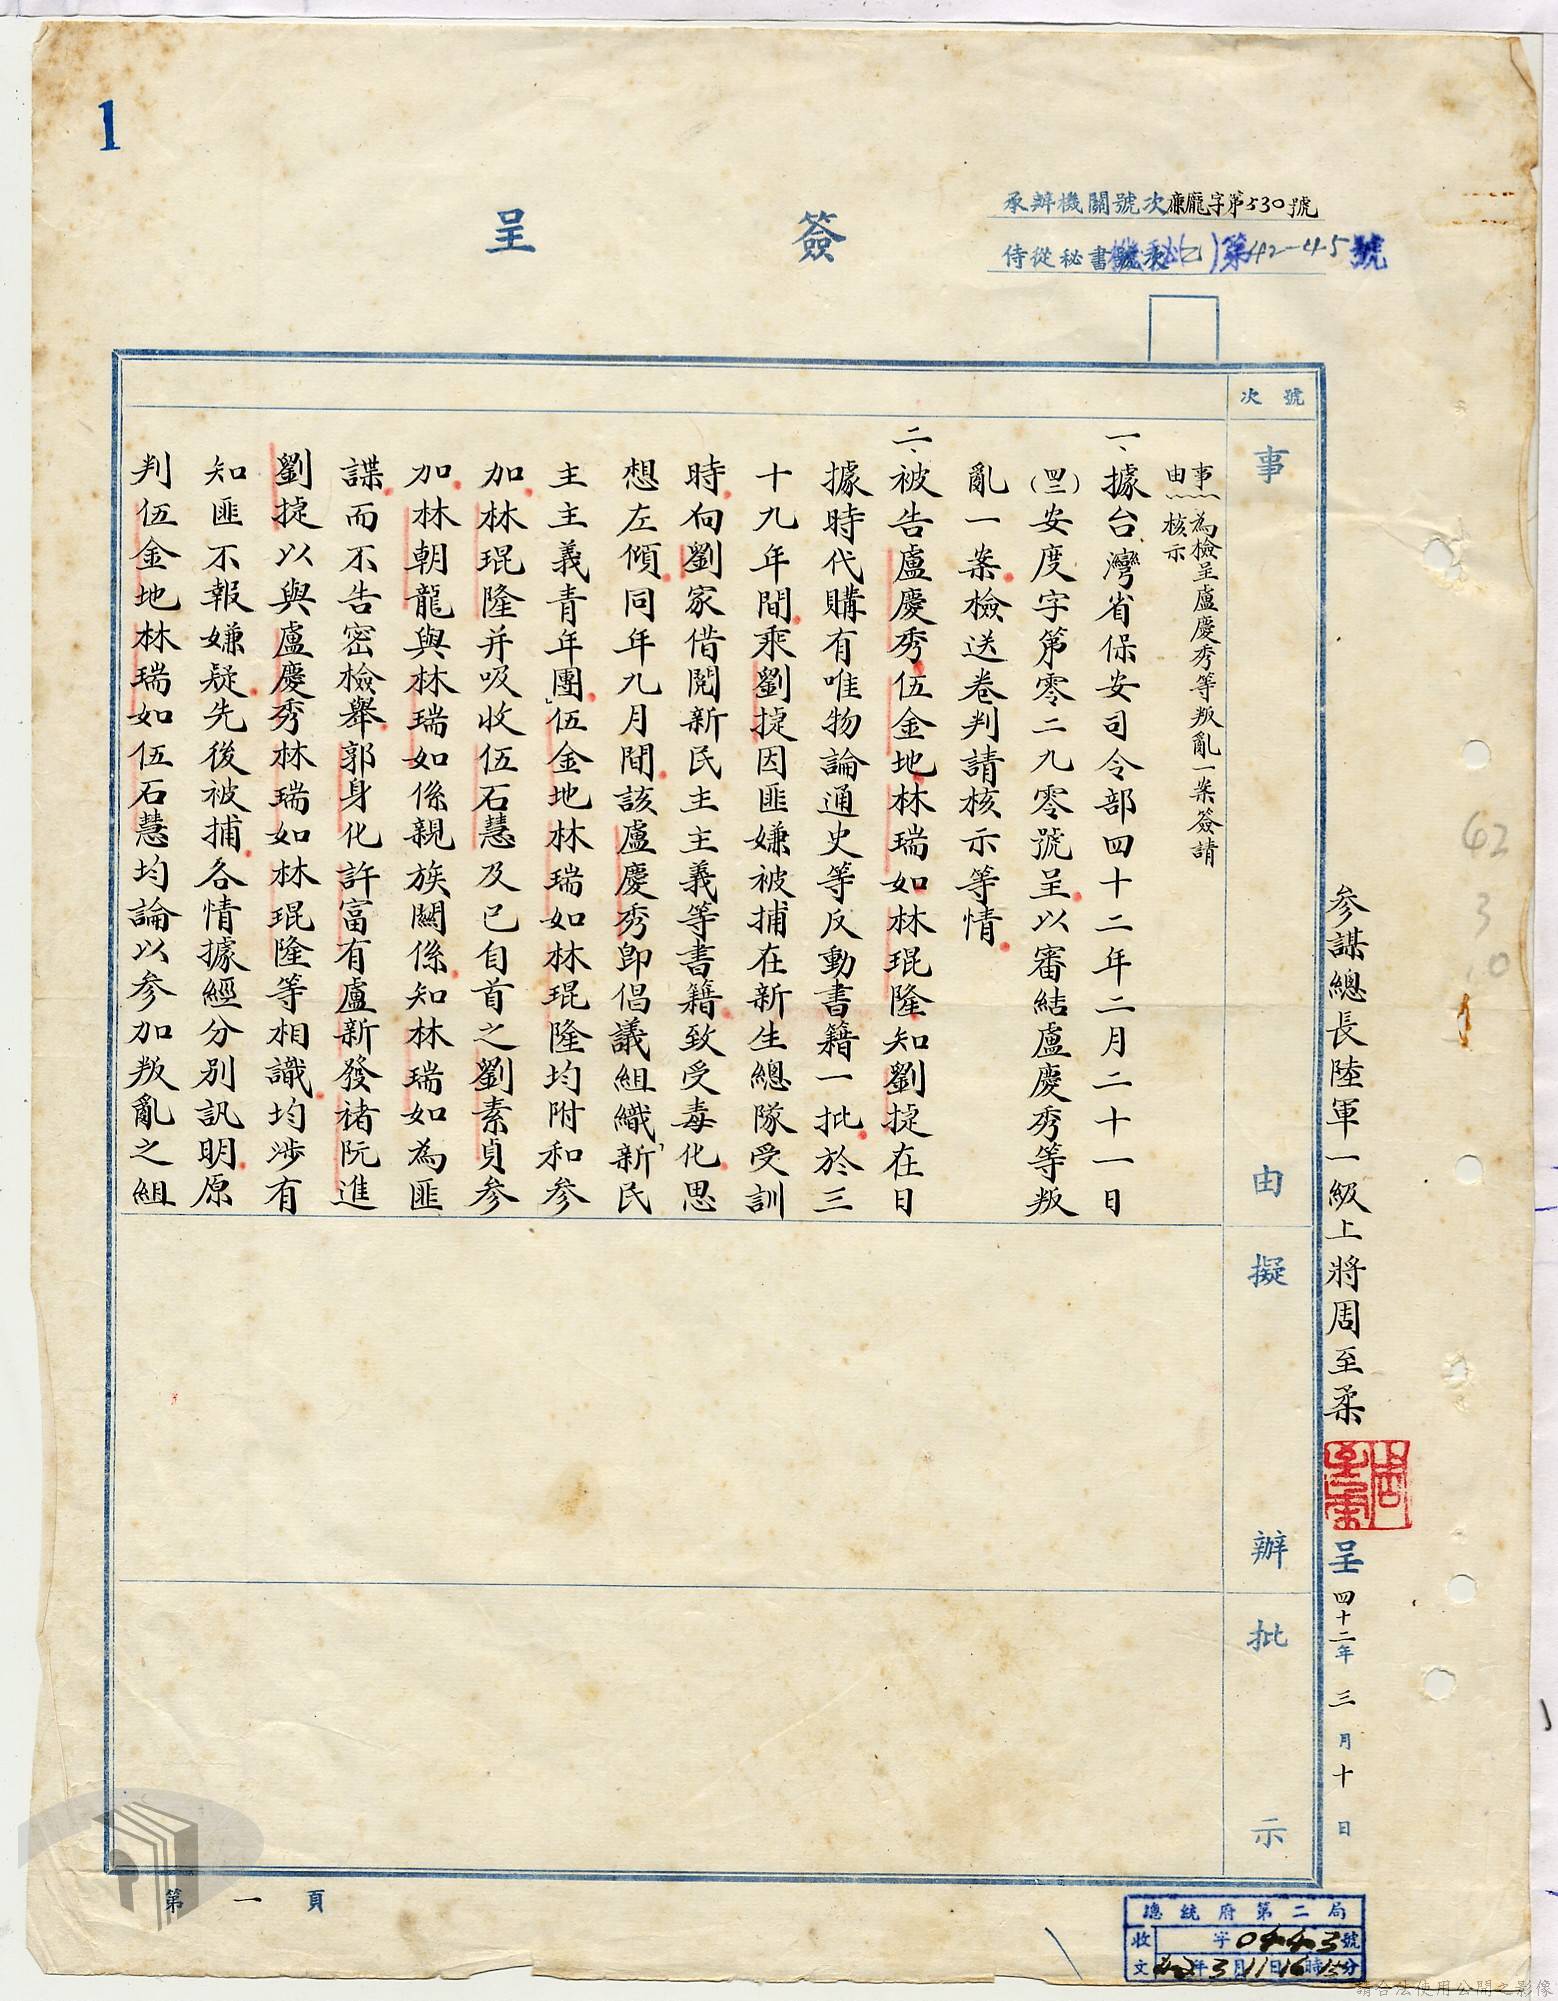 1
簽呈
承辦機關號次 廉龐字第530號
侍從秘書號次 機秘(乙)第42-45號
參謀總長陸軍一級上將周至柔
周至柔
呈 四十二年三月十日
號次
事由
擬辦
批示
事由
為檢呈盧慶秀等叛亂一案簽請
核示
一、據台灣省保安司令部四十二年二月二十一日
(四二)安度字第零二九零號呈以審結盧慶秀等叛
亂一案檢送卷判請核示等情
二、被告盧慶秀伍金地林瑞如林琨隆知劉㨗在日
據時代購有唯物論通史等反動書籍一批於三
十九年間乘劉㨗因匪嫌被捕在新生總隊受訓
時向劉家借閱新民主主義等書籍致受毒化思
想左傾同年九月間該盧慶秀即倡議組織「新民
主主義青年團」伍金地林瑞如林琨隆均附和參
加林琨隆并吸收伍石慧及已自首之劉素貞參
加林朝龍與林瑞如係親族關係知林瑞如為匪
諜而不告密檢舉郭身化許富有盧新發褚阮進
劉㨗以與盧慶秀林瑞如林琨隆等相識均涉有
知匪不報嫌疑先後被捕各情據經分別訊明原
判伍金地林瑞如伍石慧均論以參加叛亂之組
42
3
10
第一頁
總統府第二局
收文 字0443號
42年3月11日16時15分
請合法使用公開之影像